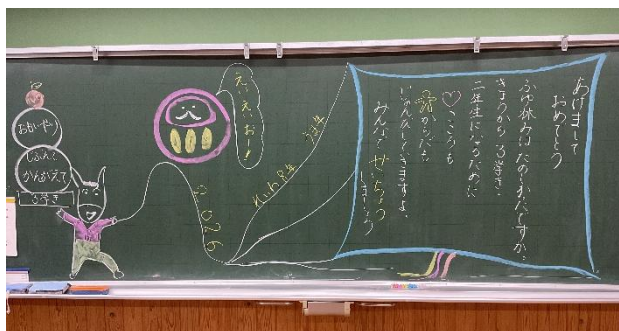 あけまして
おめでとう
ふゆ休みはたのしかたですか?
きょうから3学き。
二年生になるために
♡こころも
からだも
いみんなでできますよ。
みんなで せいちょう
しましょう
えい、えい、おー!
2026
うま年
おもいやり
じぶんで
かんがえて
3学き